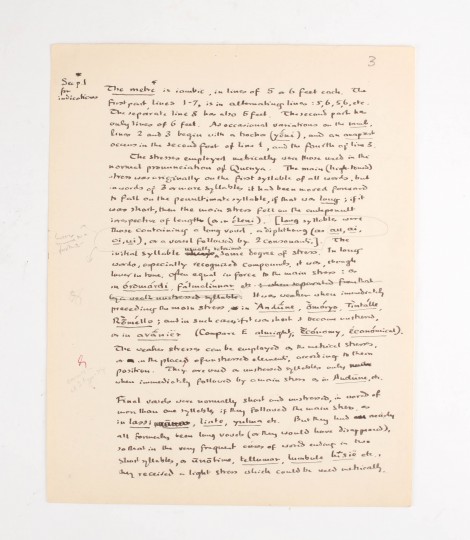 3
See p. 1
for
indications
The metre is iambic, in lines of 5 or 6 feet each. The
first part, lines 1-7, is in alternating lines: 5, 6, 5, 6, etc.
The separate line 8 has also 6 feet. The second part has
only lines of 6 feet. As occasional variations on the iamb,
lines 2 and 3 begin with a trochee, and an anapaest
occurs in the second foot of line 1, and the fourth of line 3.
The stresses employed metrically were those used in the
normal pronunciation of Quenya. The main (high-toned)
stress was originally on the first syllable of all words, but
in words of 3 or more syllables it had been moved forward
to fall on the penultimate syllable, if that was long; if it
was short, then the main stress fell on the antepenult
irrespective of length (as in éleni). [Long syllables were
those containing a long vowel, a diphthong (as au, ai,
oi, ui), or a vowel followed by 2 consonants.] The
initial syllable usually retains some degree of stress. In long
words, especially recognized compounds, it was, though
lower in tone, often equal in force to the main stress: as
in óromárdi, fálmalínnar etc. when separated from that
by a weak unstressed syllable. It was weaker when immediately
preceding the main stress, as in Andúne, ómáryo, Tintálle
and in such case if it was short it became unstressed,
as in avánier. (Compare E almighty, economy, económical).
The weaker stresses can be employed as metrical stress,
or in the place of unstressed elements, according to their
position. They are used as unstressed syllables only
when immediately followed by a main stress as in Andúne, etc.
Final vowels were normally short and unstressed, in words of
more than one syllable, if they followed the main stress as
in lassi, linte, yulma etc. But they had nearly
all formerly been long vowels (or they would have disappeared),
so that in the very frequent cases of words ending in two
short syllables, as únótime, tellumar, lumbule, hísie etc.,
they received a light stress which could be used metrically.